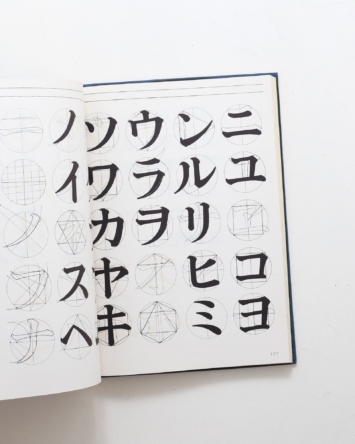 ノソウンニ
イワラルユ
カヲリ
スヤヒコ
ヘキミヨ